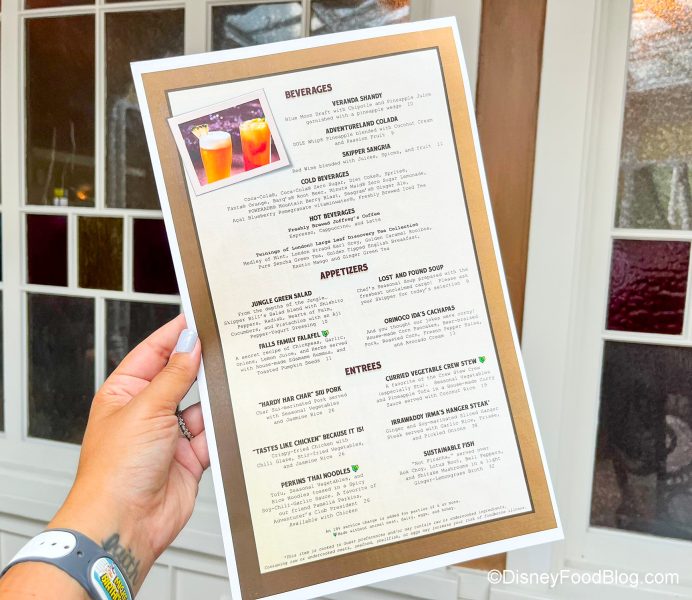 BEVERAGES
VERANDA SHANDY
Blue Moon Draft with Chipotle and Pineapple Juice
garnished with a pineapple wedge 10
ADVENTURELAND COLADA
DOLE Whip® Pineapple blended with Coconut Cream
and Passion Fruit 6
SKIPPER SANGRIA
Red Wine blended with Juices, Spices, and Fruit 11
COLD BEVERAGES
Coca-Cola®, Coca-Cola® Zero Sugar, Diet Coke®, Sprite®,
Fanta® Orange, Barq's® Root Beer, Minute Maid® Zero Sugar Lemonade,
POWERADE® Mountain Berry Blast, Seagram's® Ginger Ale,
Açai Blueberry Pomegranate vitaminwater®, Freshly Brewed Iced Tea
HOT BEVERAGES
Freshly Brewed Joffrey's® Coffee
Espresso, Cappuccino, and Latte
Twinings of London® Large Leaf Discovery Tea Collection
Medley of Mint, London Strand Earl Grey, Golden Caramel Rooibos,
Pure Sencha Green Tea, Golden Tipped English Breakfast,
Exotic Mango and Ginger Green Tea
APPETIZERS
JUNGLE GREEN SALAD
From the depths of the Jungle,
Skipper Bill's Salad blend with Shishito
Peppers, Radish, Hearts of Palm,
Cucumbers, and Pistachios with an Aji
Pepper-Yogurt Dressing 10
FALLS FAMILY FALAFEL
A secret recipe of Chickpeas, Garlic,
Onions, Lemon Juice, and Herbs served
with House-made Edamame Hummus, and
Toasted Pumpkin Seeds 11
LOST AND FOUND SOUP
Chef's Seasonal Soup prepared with the
freshest unclaimed cargo! Please ask
your Skipper for today's selection 9
ORINOCO IDA'S CACHAPAS
And you thought our jokes were corny!
House-made Corn Pancakes, Beer-braised
Pork, Roasted Corn, Fresno Pepper Salsa,
and Avocado Cream 13
ENTRÉES
"HARDY HAR CHAR" SIU PORK
Char Siu-marinated Pork served
with Seasonal Vegetables
and Jasmine Rice 26
"TASTES LIKE CHICKEN" BECAUSE IT IS!
Crispy-fried Chicken with
Chili Glaze, Stir-fried Vegetables,
and Jasmine Rice 26
PERKINS THAI NOODLES
Tofu, Seasonal Vegetables, and
Rice Noodles tossed in a Spicy
Soy-Chili-Garlic Sauce. A favorite of
our friend Pamelia Perkins,
Adventurer's Club President 26
Available with Chicken
CURRIED VEGETABLE CREW STEW
A favorite of the Crew Stew Crew
(especially Stu). Seasonal Vegetables
and Pineapple Tofu in a House-made Curry
Sauce served with Coconut Rice 19
IRRAWADDY IRMA'S HANGER STEAK*
Ginger and Soy-marinated Sliced Hanger
Steak served with Garlic Rice, Frisée,
and Pickled Onions 36
SUSTAINABLE FISH
"Not Piranha," served over
Bok Choy, Lotus Root, Bell Peppers,
and Shitake Mushrooms in a Light
Ginger-Lemongrass Broth 32
An 18% service charge is added for parties of 6 or more.
Made without animal meat, dairy, eggs, and honey.
*This item is cooked to Guest preferences and/or may contain raw or undercooked ingredients.
Consuming raw or undercooked meats, seafood, shellfish, or eggs may increase your risk of foodborne illness.
©DisneyFoodBlog.com